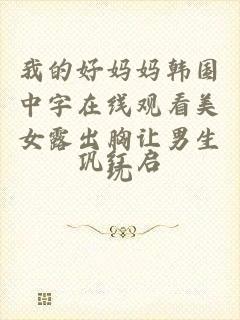 我的好妈妈韩国
中字在线观看美
女露出胸让男生
巩红启